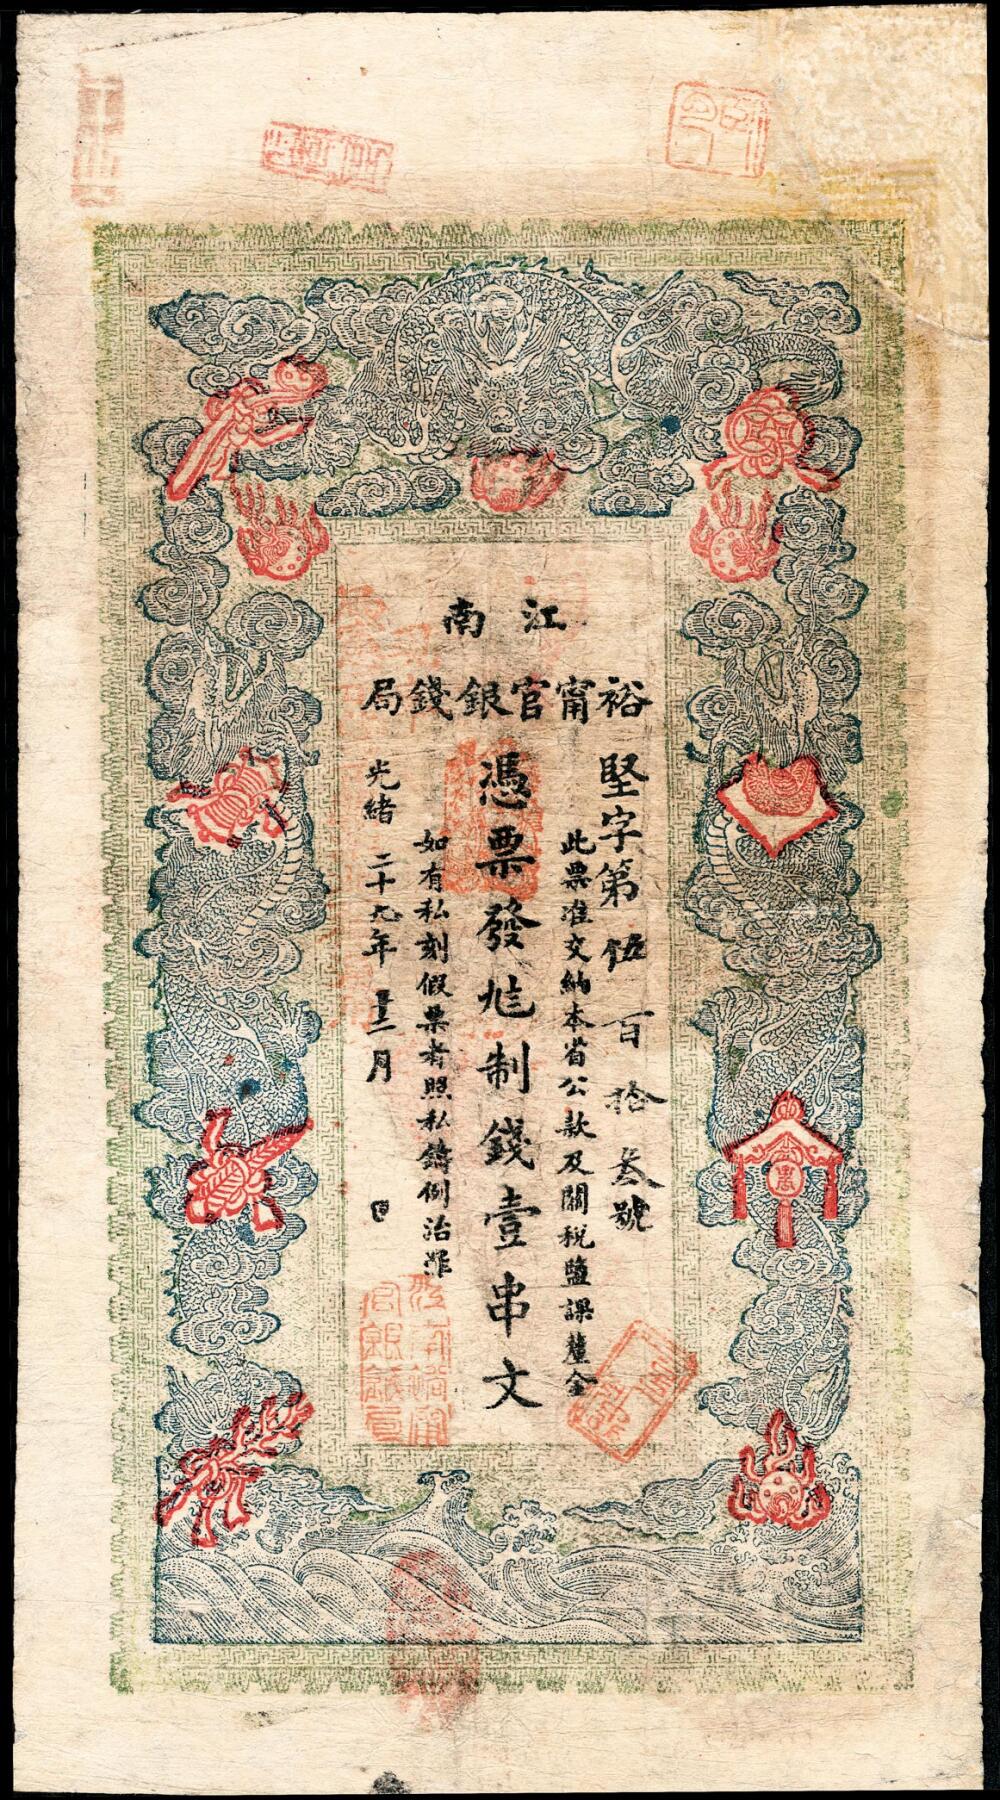 江南
裕甯官銀錢局
堅字第伍百拾叁號
此票准交納本省公款及關稅鹽課釐金
憑票發足制錢壹串文
如有私刻假票者照私鑄例治罪
光緒二十九年十二月 日